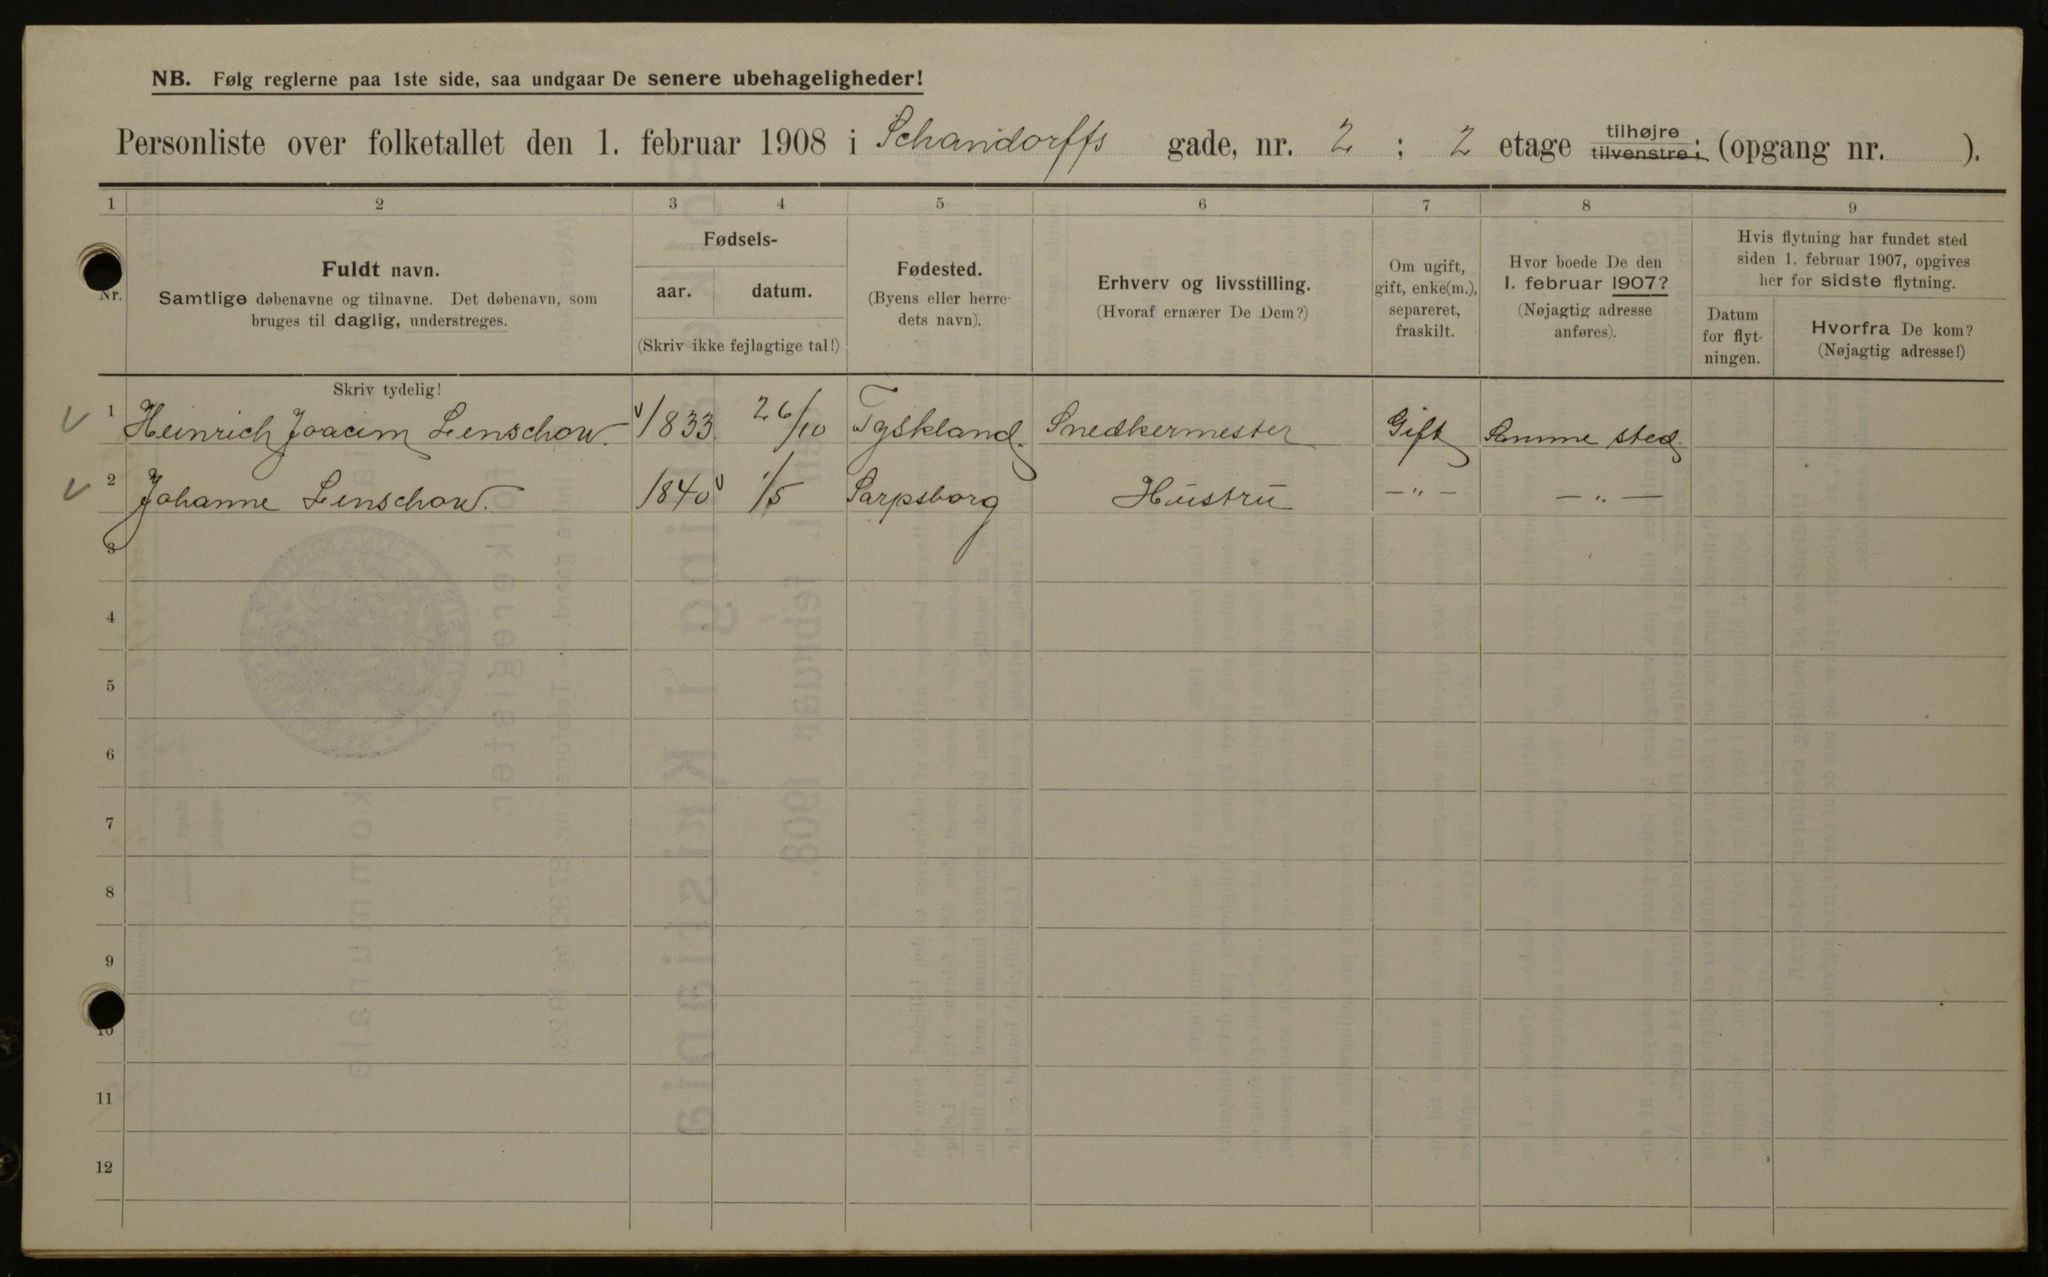 NB. Følg reglerne paa 1ste side, saa undgaar De senere ubehageligheder!
Personliste over folketallet den 1. februar 1908 i Schandorffs gade, nr. 2 ; 2 etage tilhøjre tilvenstre; (opgang nr. ).
1 2 3 4 5 6 7 8 9
Nr.
Fuldt navn.
Samtlige døbenavne og tilnavne. Det døbenavn, som
bruges til daglig, understreges.
Skriv tydelig!
Fødsels-
aar. datum.
(Skriv ikke fejlagtige tal!)
Fødested.
(Byens eller herre-
dets navn).
Erhverv og livsstilling.
(Hvoraf ernærer De Dem?)
Om ugift,
gift, enke(m.),
separeret,
fraskilt.
Hvor boede De den
1. februar 1907?
(Nøjagtig adresse
anføres).
Hvis flytning har fundet sted
siden 1. februar 1907, opgives
her for sidste flytning.
Datum
for flyt-
ningen.
Hvorfra De kom?
(Nøjagtig adresse!)
1 Heinrich Joacim Lenschow. 1833. 26/10 Tyskland. Snedkermester Gift Samme sted.
2 Johanne Lenschow. 1840 1/5 Sarpsborg Hustru — " — — " —
3
4
5
6
7
8
9
10
11
12